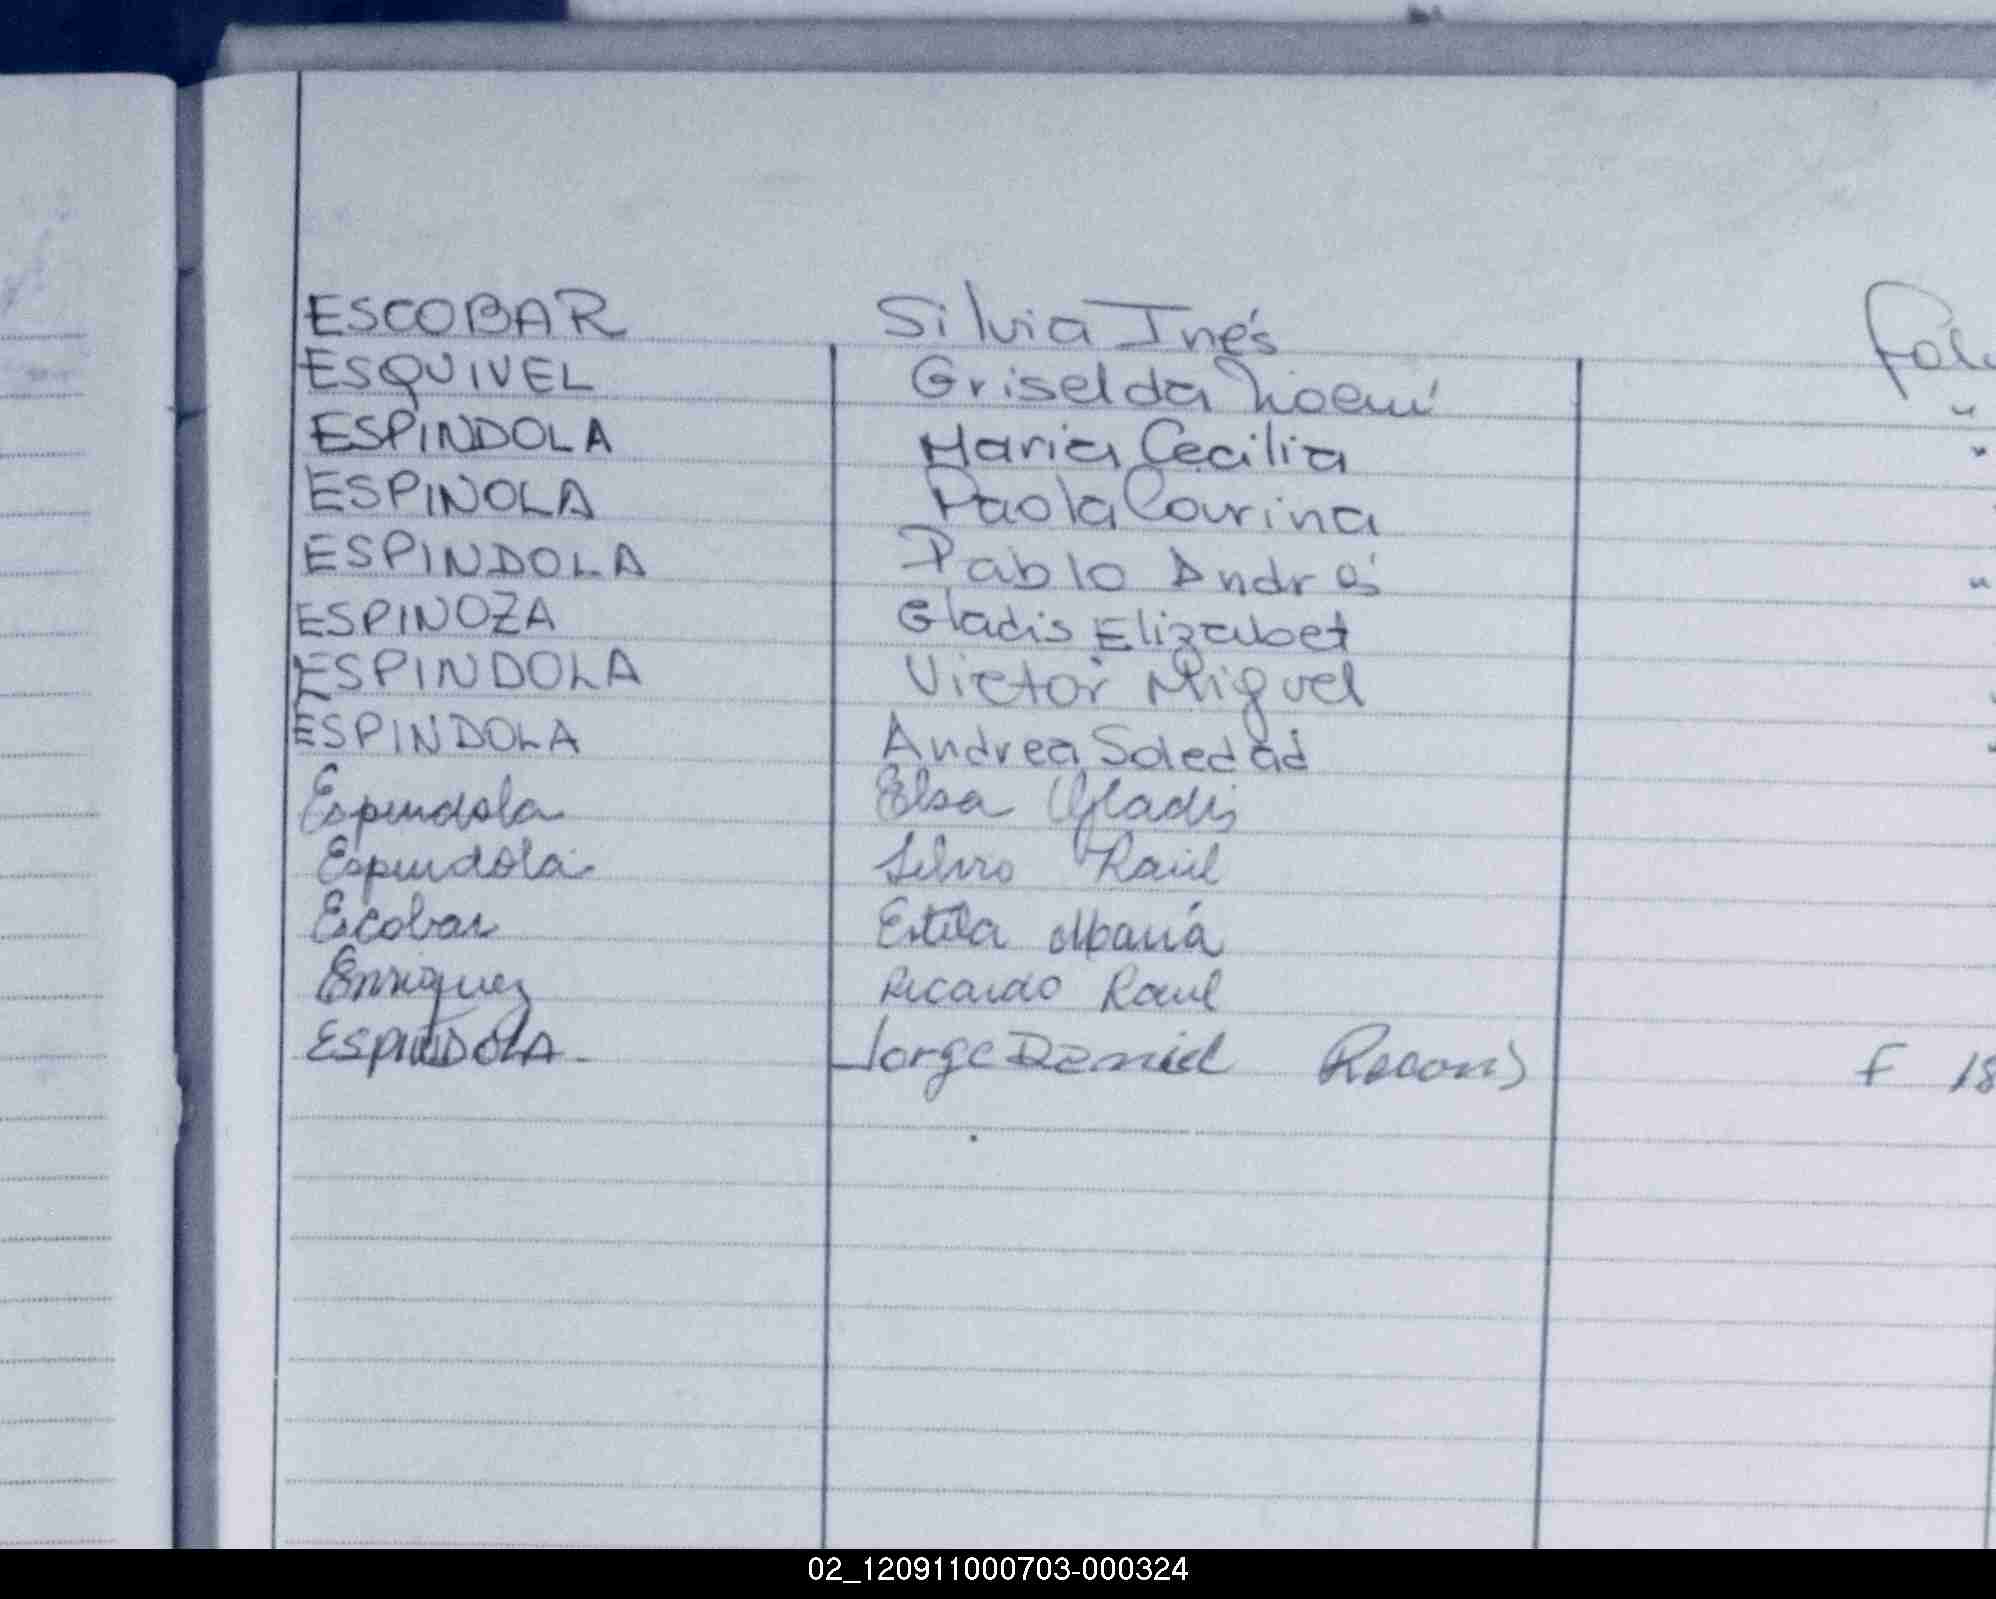 ESCOBAR Silvia Inés
ESQUIVEL Griselda Noemí "
ESPINDOLA Maria Cecilia "
ESPINOLA Paola Courina
ESPINDOLA Pablo Andrés "
ESPINOZA Gladis Elizabet
ESPINDOLA Victor Miguel
ESPINDOLA Andrea Soledad
Espindola Elsa Gladis
Espindola Silvio Raúl
Escobar Estela María
Enriquez Ricardo Raul
ESPINDOLA Jorge Daniel F 18
02_120911000703-000324